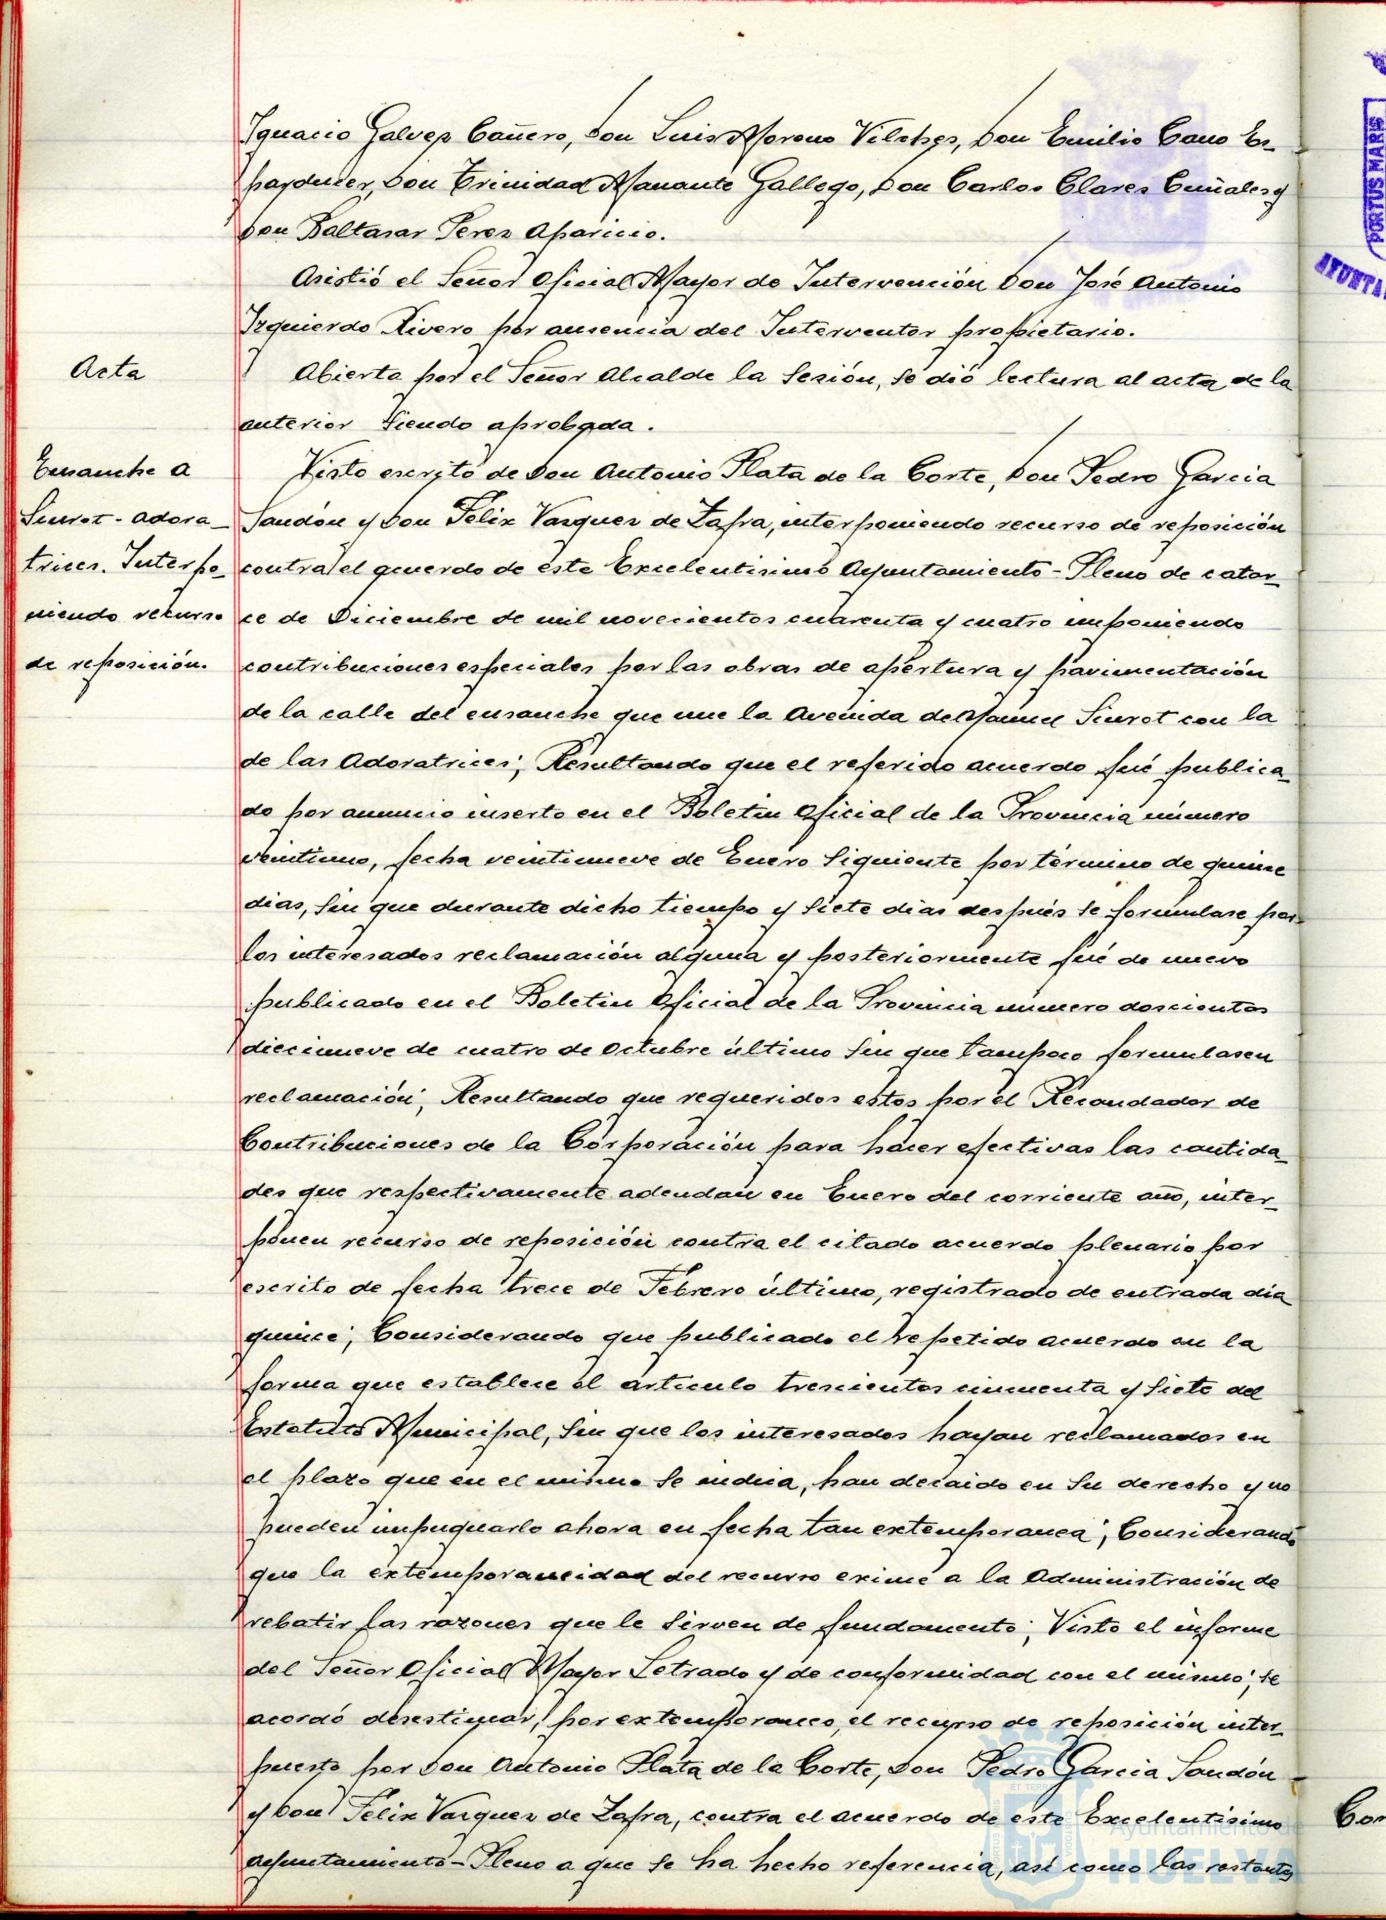 Ignacio Galvez Cañero, Don Luis Moreno Vilches, Don Emilio Cano Es-
parducer, Don Trinidad Manante Gallego, Don Carlos Clares Cuñales y
Don Baltasar Perez Aparicio.
Asistió el Señor Oficial Mayor de Intervención Don José Antonio
Izquierdo Rivero por ausencia del Interventor propietario.
Acta
Abierta por el Señor Alcalde la Sesión, se dió lectura al acta de la
anterior siendo aprobada.
Ensanche a
Siurot - Adora-
trices. Interpo-
niendo recurso
de reposición.
Visto escrito de Don Antonio Plata de la Corte, Don Pedro Garcia
Sandón y Don Felix Vazquez de Zafra, interponiendo recurso de reposición
contra el acuerdo de este Excelentisimo Ayuntamiento-Pleno de cator-
ce de Diciembre de mil novecientos cuarenta y cuatro imponiendo
contribuciones especiales por las obras de apertura y pavimentación
de la calle del ensanche que une la Avenida de Manuel Siurot con la
de las Adoratrices; Resultando que el referido acuerdo fué publica-
do por anuncio inserto en el Boletin Oficial de la Provincia número
veintiuno, fecha veintinueve de Enero siguiente por término de quince
dias, sin que durante dicho tiempo y siete dias después se formulase por
los interesados reclamación alguna y posteriormente fué de nuevo
publicado en el Boletin Oficial de la Provincia número doscientos
diecinueve de cuatro de Octubre último sin que tampoco formulasen
reclamación; Resultando que requeridos estos por el Recaudador de
Contribuciones de la Corporación para hacer efectivas las cantida-
des que respectivamente adeudan en Enero del corriente año, inter-
ponen recurso de reposición contra el citado acuerdo plenario por
escrito de fecha trece de Febrero último, registrado de entrada dia
quince; Considerando que publicado el repetido acuerdo en la
forma que establece el artículo trescientos cincuenta y siete del
Estatuto Municipal, sin que los interesados hayan reclamados en
el plazo que en el mismo se indica, han decaido en su derecho y no
pueden impugnarlo ahora en fecha tan extemporanea; Considerando
que la extemporaneidad del recurso exime a la Administración de
rebatir las razones que le sirven de fundamento; Visto el informe
del Señor Oficial Mayor Letrado y de conformidad con el mismo; se
acordó desestimar, por extemporaneo, el recurso de reposición inter-
puesto por Don Antonio Plata de la Corte, Don Pedro Garcia Sandón
y Don Felix Vazquez de Zafra, contra el acuerdo de este Excelentísimo
Ayuntamiento-Pleno a que se ha hecho referencia, así como las restantes
Con
PORTUS MARIS
AYUNTA
Ayuntamiento de
HUELVA